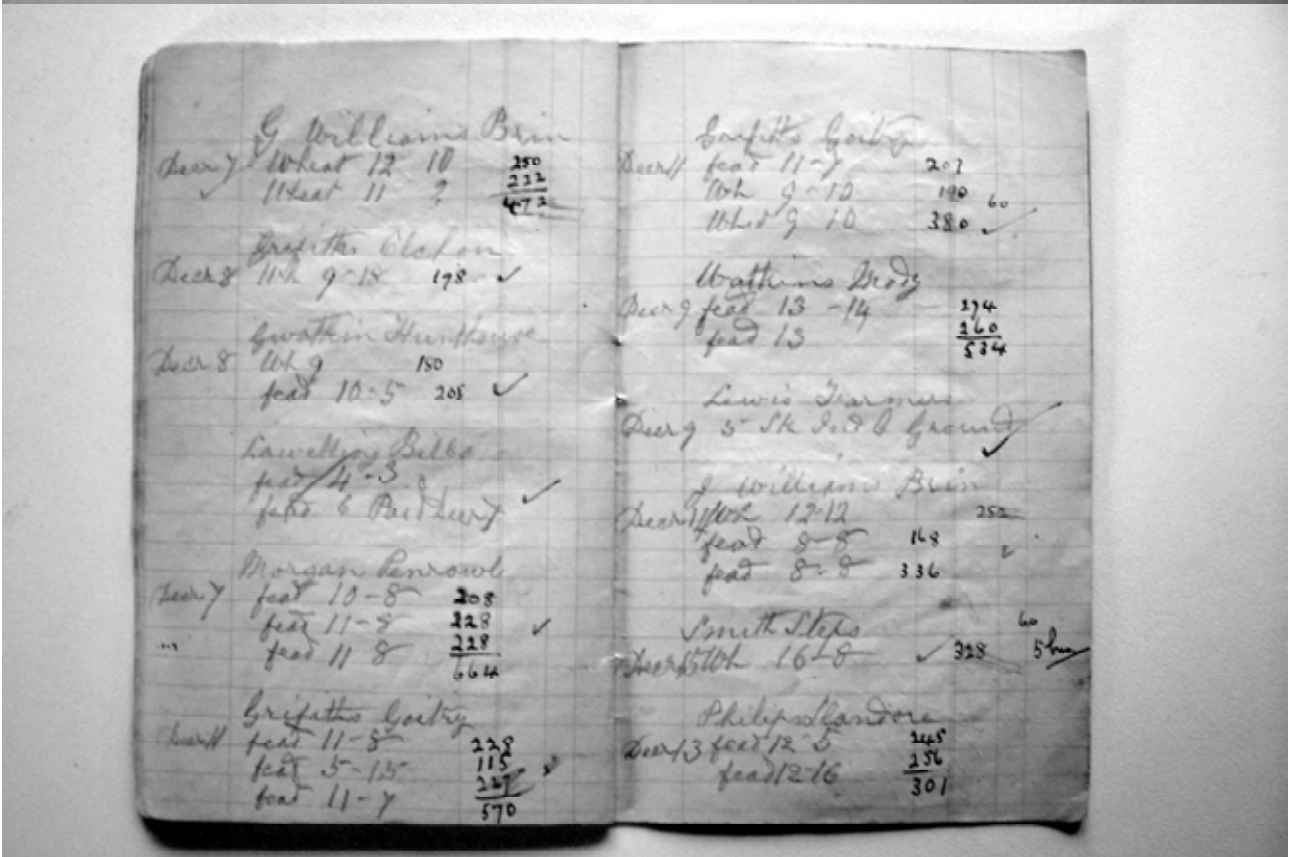 G Williams Brin
Decr 7 Wheat 12 10 250
Wheat 11 2 222
472
Griffiths
Decr 8 Wh 9-18 198
Gwatkin Hunthouse
Decr 8 Wh 9 180
fead 10-5 205
Bilbo
fead 4-3
fead 6 Paid Decr 7
Morgan Penrowl
Decr 7 fead 10-8 208
fead 11-8 228
fead 11 8 228
664
Grifiths Goitry
Decr 11 fead 11-8 228
fead 5-15 115
fead 11-7 227
570
Grifiths Goitry
Decr 11 fead 11-7 207
Wh 9-10 190 60
9 10 380
Watkins
Decr 9 fead 13-14 274
fead 13 260
534
Lewis Farmers
Decr 9 5 Sk Ground
J Williams Brin
Decr 11 Wh 12-12 252
fead 8-8 168
fead 8-8 336
Smith Steps 60
Decr 15 Wh 16-8 328
Philips Llandore
Decr 13 fead 12-5 245
fead 12-16 256
301